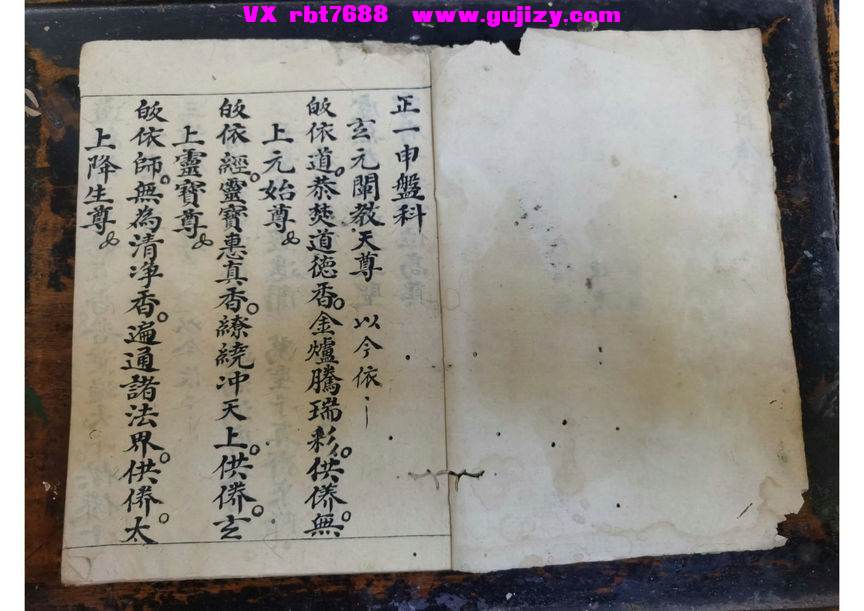 VX rbt7688 www.gujizy.com
正一申盤科
玄元闡教天尊 以今依
皈依道。恭焚道德香。金爐騰瑞彩。供養無。
上元始尊。
皈依經。靈寶惠真香。繚繞冲天上。供養。玄
上靈寶尊。
皈依師。無為清净香。遍通諸法界。供養。太
上降生尊。